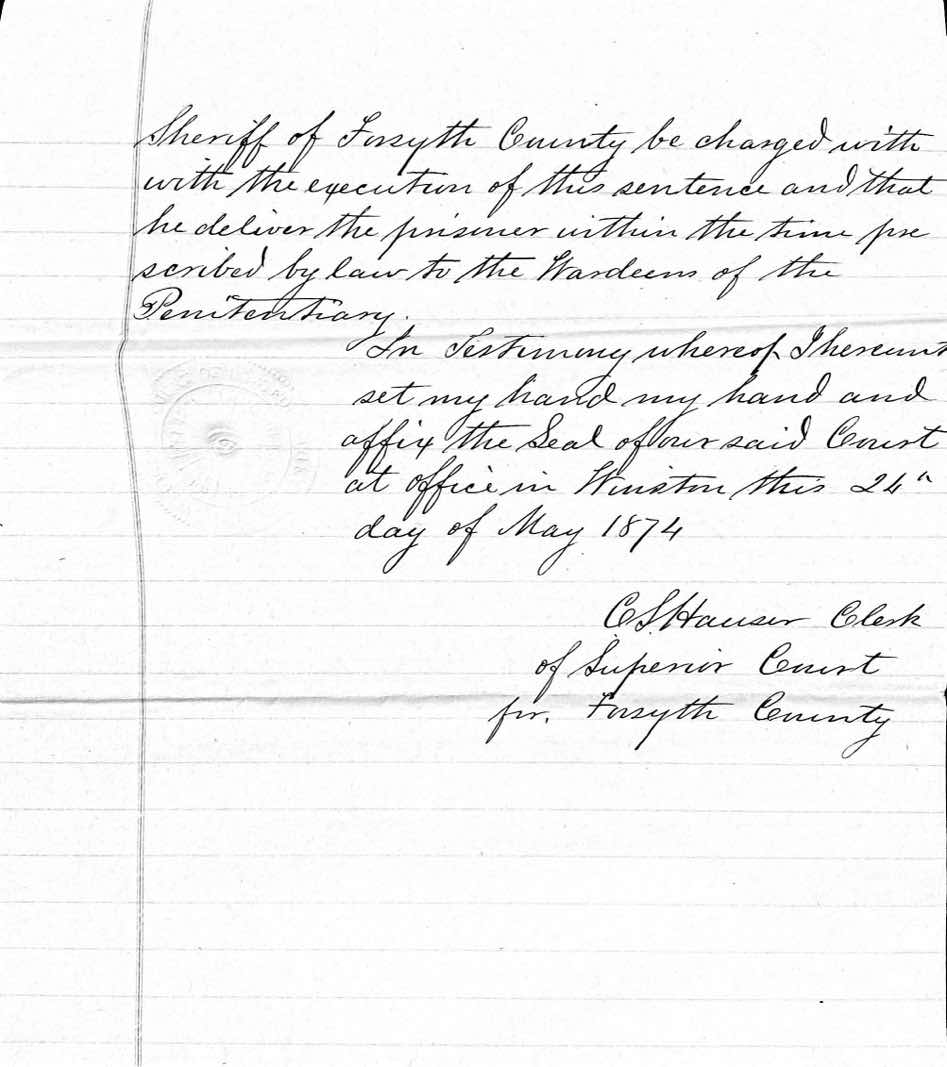 Sheriff of Forsyth County be charged with
with the execution of this sentence and that
he deliver the prisoner within the time pre
scribed by law to the Wardeens of the
Penitentiary.
In Testimony whereof I hereunt
set my hand my hand and
affix the Seal of our said Court
at office in Winston this 24th
day of May 1874
C S Hauser Clerk
of Superior Court
for. Forsyth County